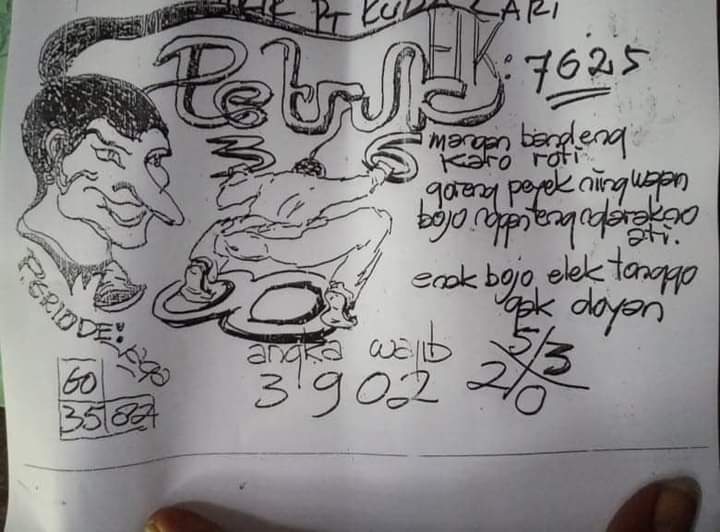 PT KUDA LARI
Petruk
EK: 7625
mangan bandeng
karo roti
goreng peyek ning wajan
bojo ngganteng ngarakno
ati.
enak bojo elek tonggo
gak doyan
PERIODE:
angka wajib
3902
5 3
2 0
60
35